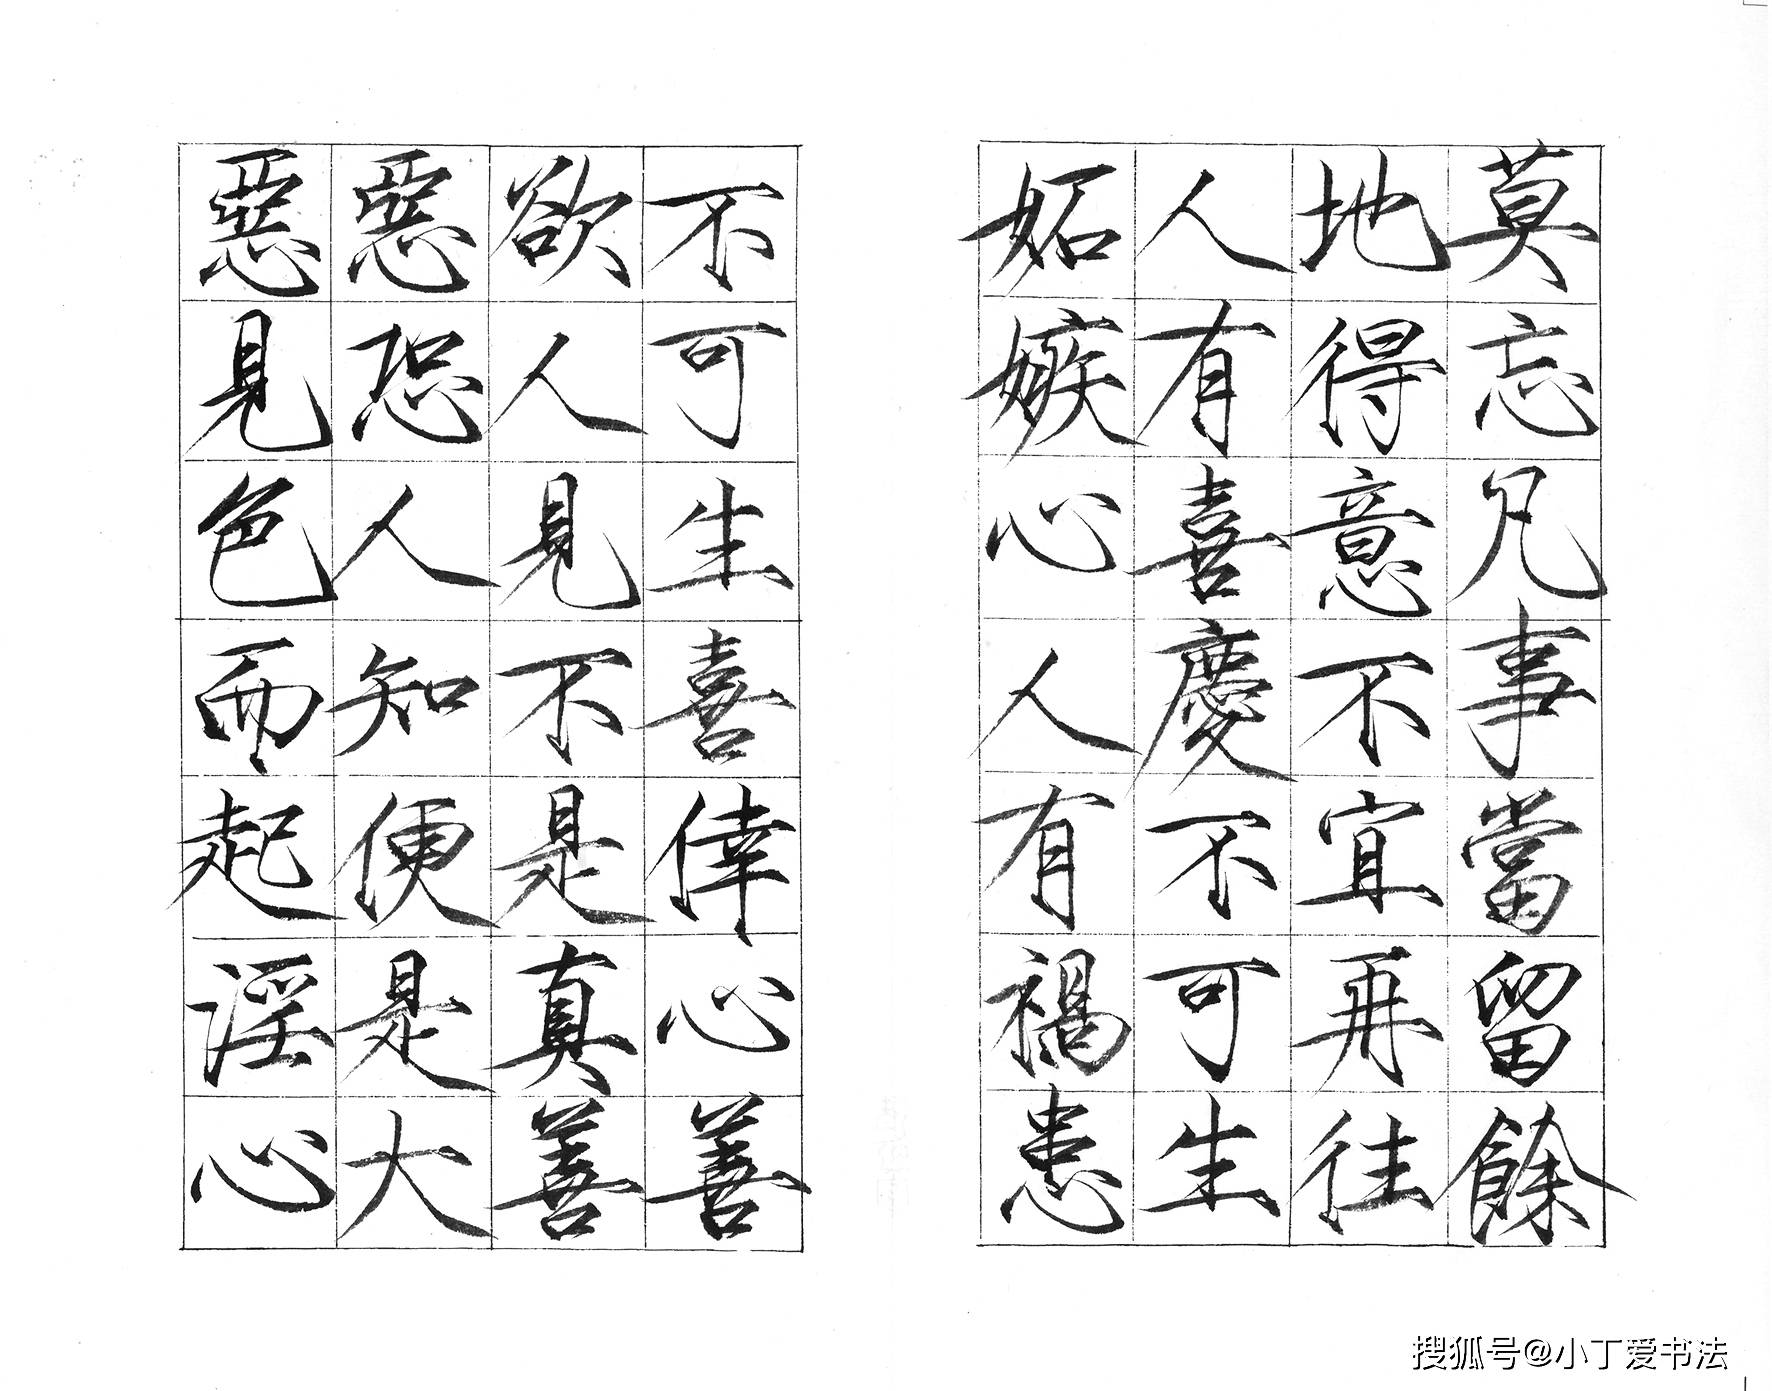 莫忘凡事當留餘
地得意不宜再往
人有喜慶不可生
妬嫉心人有禍患
不可生喜倖心善
欲人見不是真善
惡恐人知便是大
惡見色而起淫心
搜狐号@小丁爱书法